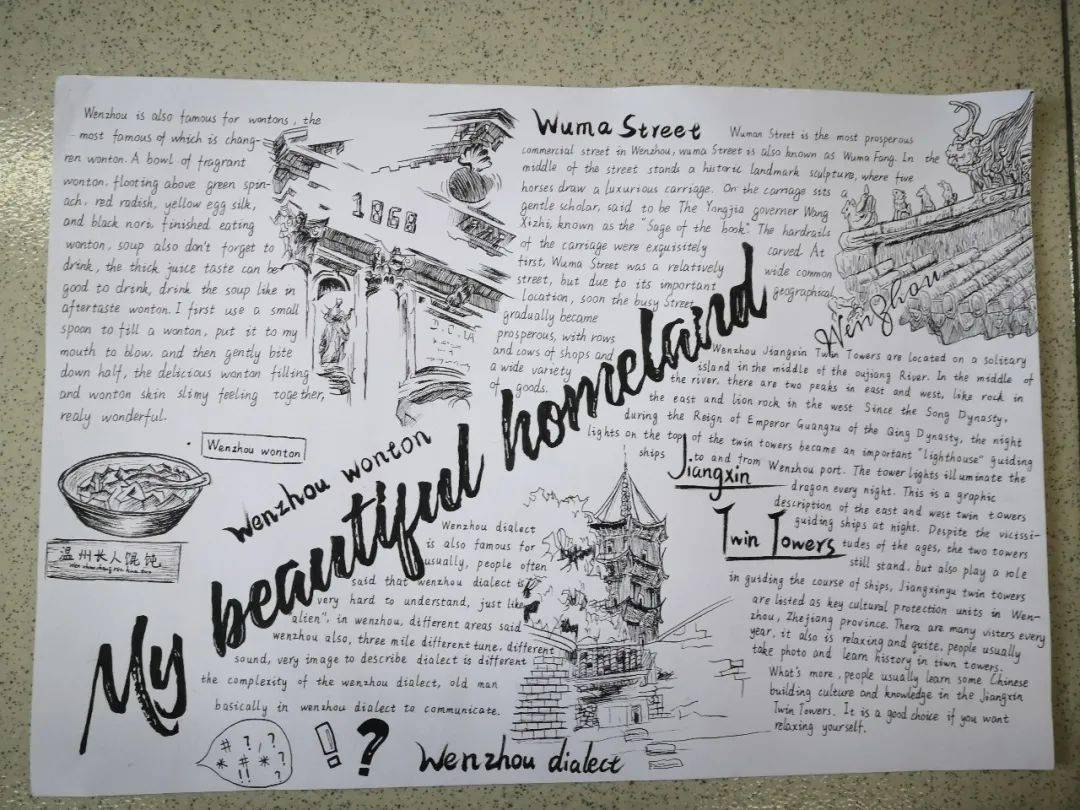 Wenzhou is also famous for wontons, the
most famous of which is chang-
ren wonton. A bowl of fragrant
wonton, flooting above green spin-
ach, red radish, yellow egg silk,
and black nori, finished eating
wonton, soup also don't forget to
drink, the thick juice taste can be
good to drink, drink the soup like in
aftertaste wonton. I first use a small
spoon to fill a wonton, put it to my
mouth to blow, and then gently bite
down half, the delicious wonton filling
and wonton skin slimy feeling together,
realy wonderful.
1868
Wenzhou wonton
温州长人馄饨
Wenzhou wonton
My beautiful homeland
Wuma Street
Wuman Street is the most prosperous
commercial street in Wenzhou, wuma Street is also known as Wuma Fang. In the
middle of the street stands a historic landmark sculpture, where five
horses draw a luxurious carriage. On the carriage sits a
gentle scholar, said to be The Yongjia governer Wang
Xizhi, known as the "Sage of the book". The hardrails
of the carriage were exquisitely carved. At
first, Wuma Street was a relatively wide common
street, but due to its important geographical
location, soon the busy Street
gradually became
prosperous, with rows
and cows of shops and
a wide variety
of goods.
WenZhou
Wenzhou Jiangxin Twin Towers are located on a solitary
island in the middle of the oujiang River. In the middle of
the river, there are two peaks in east and west, like rock in
the east and lion rock in the west Since the Song Dynasty,
during the Reign of Emperor Guangxu of the Qing Dynasty, the night
lights on the top of the twin towers became an important "lighthouse" guiding
ships to and from Wenzhou port. The tower lights illuminate the
dragon every night. This is a graphic
description of the east and west twin towers
guiding ships at night. Despite the vicissi-
tudes of the ages, the two towers
still stand, but also play a role
in guiding the course of ships, Jiangxinyu twin towers
are listed as key cultural protection units in Wen-
zhou, Zhejiang province. There are many visters every
year, it also is relaxing and quite, people usually
take photo and learn history in tiwn towers.
What's more, people usually learn some Chinese
building culture and knowledge in the Jiangxin
Twin Towers. It is a good choice if you want
relaxing yourself.
Jiangxin
Twin Towers
Wenzhou dialect
is also famous for
usually, people often
said that wenzhou dialect is
very hard to understand, just like
alien", in wenzhou, different areas said
wenzhou also, three mile different tune, different
sound, very image to describe dialect is different
the complexity of the wenzhou dialect, old man
basically in wenzhou dialect to communicate.
# ? , ?
* # * ?
!! ?
! ?
Wenzhou dialect